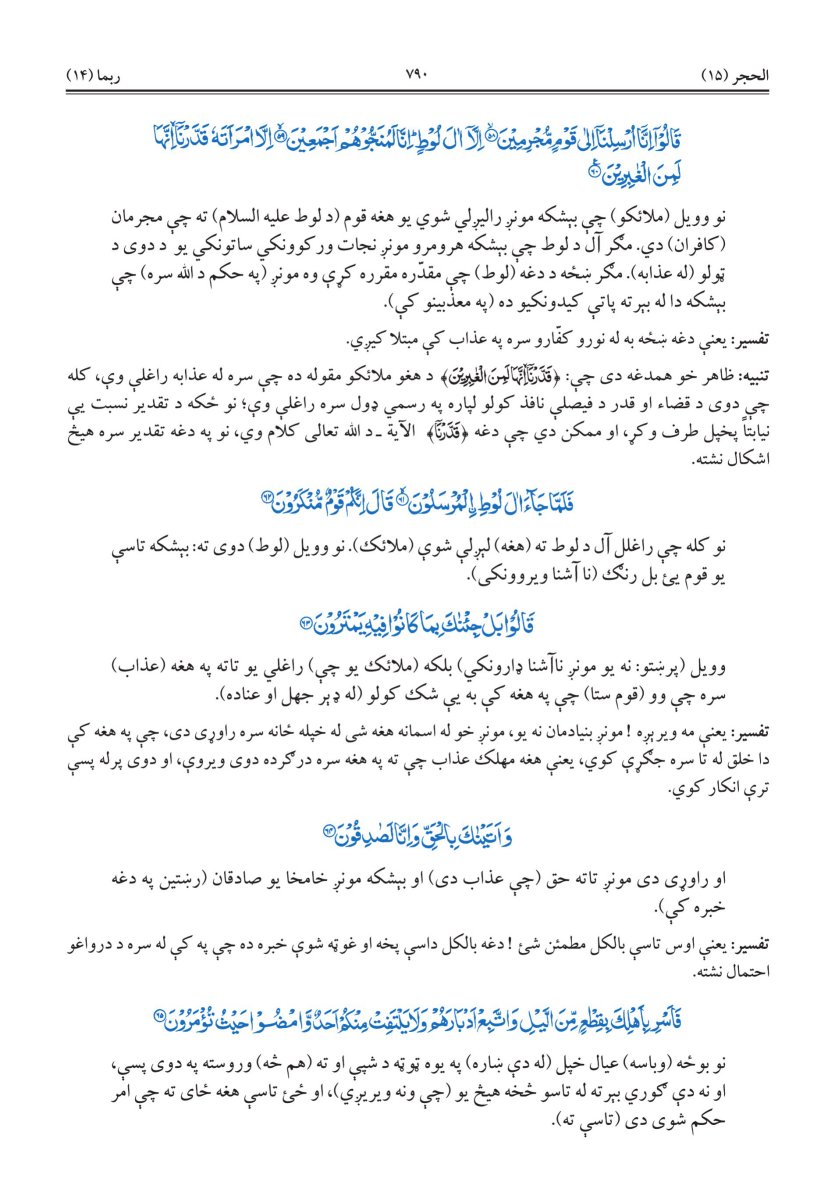 الحجر (۱۵)
۷۹۰
ربما (۱۴)
قَالُوْٓا اِنَّآ اُرْسِلْنَآ اِلٰى قَوْمٍ مُّجْرِمِيْنَ ۵۸ اِلَّآ اٰلَ لُوْطٍ ۭ اِنَّا لَمُنَجُّوْهُمْ اَجْمَعِيْنَ ۵۹ اِلَّا امْرَاَتَهٗ قَدَّرْنَآ اِنَّهَا
لَمِنَ الْغٰبِرِيْنَ ۶۰
نو وويل (ملائكو) چې بېشكه مونږ رالېږلي شوي يو هغه قوم (د لوط عليه السلام) ته چې مجرمان
(كافران) دي. مگر آل د لوط چې بېشكه هرومرو مونږ نجات وركوونكي ساتونكي يو د دوى د
ټولو (له عذابه). مگر ښځه د دغه (لوط) چې مقدّره مقرره كړې وه مونږ (په حكم د الله سره) چې
بېشكه دا له بېرته پاتې كيدونكيو ده (په معذبينو كې).
تفسير: يعنې دغه ښځه به له نورو كفّارو سره په عذاب كې مبتلا كيږي.
تنبيه: ظاهر خو همدغه دى چې: ﴿قَدَّرْنَآ اِنَّهَا لَمِنَ الْغٰبِرِيْنَ﴾ د هغو ملائكو مقوله ده چې سره له عذابه راغلي وې، كله
چې دوى د قضاء او قدر د فيصلې نافذ كولو لپاره په رسمي ډول سره راغلي وې؛ نو ځكه د تقدير نسبت يې
نيابتاً پخپل طرف وكړ، او ممكن دي چې دغه ﴿قَدَّرْنَآ﴾ الآية ـ د الله تعالى كلام وي، نو په دغه تقدير سره هيڅ
اشكال نشته.
فَلَمَّا جَاۗءَ اٰلَ لُوْطِ ۨالْمُرْسَلُوْنَ ۶۱ قَالَ اِنَّكُمْ قَوْمٌ مُّنْكَرُوْنَ ۶۲
نو كله چې راغلل آل د لوط ته (هغه) لېږلې شوې (ملائك). نو وويل (لوط) دوى ته: بېشكه تاسې
يو قوم يئ بل رنګ (نا آشنا ويروونكى).
قَالُوْا بَلْ جِئْنٰكَ بِمَا كَانُوْا فِيْهِ يَمْتَرُوْنَ ۶۳
وويل (پرښتو: نه يو مونږ ناآشنا ډارونكي) بلكه (ملائك يو چې) راغلي يو تاته په هغه (عذاب)
سره چې وو (قوم ستا) چې په هغه كې به يې شك كولو (له ډېر جهل او عناده).
تفسير: يعنې مه ويرېږه ! مونږ بنيادمان نه يو، مونږ خو له اسمانه هغه شى له خپله ځانه سره راوړى دى، چې په هغه كې
دا خلق له تا سره جګړې كوي، يعنې هغه مهلك عذاب چې ته په هغه سره درګرده دوى ويروې، او دوى پرله پسې
ترې انكار كوي.
وَاَتَيْنٰكَ بِالْحَقِّ وَاِنَّا لَصٰدِقُوْنَ ۶۴
او راوړى دى مونږ تاته حق (چې عذاب دى) او بېشكه مونږ خامخا يو صادقان (رښتين په دغه
خبره كې).
تفسير: يعنې اوس تاسې بالكل مطمئن شئ ! دغه بالكل داسې پخه او غوټه شوې خبره ده چې په كې له سره د درواغو
احتمال نشته.
فَاَسْرِ بِاَهْلِكَ بِقِطْعٍ مِّنَ الَّيْلِ وَاتَّبِعْ اَدْبَارَهُمْ وَلَا يَلْتَفِتْ مِنْكُمْ اَحَدٌ وَّامْضُوْا حَيْثُ تُؤْمَرُوْنَ ۶۵
نو بوځه (وباسه) عيال خپل (له دې ښاره) په يوه ټوټه د شپې او ته (هم څه) وروسته په دوى پسې،
او نه دې ګوري بېرته له تاسو څخه هيڅ يو (چې ونه ويريږي)، او ځئ تاسې هغه ځاى ته چې امر
حكم شوى دى (تاسې ته).